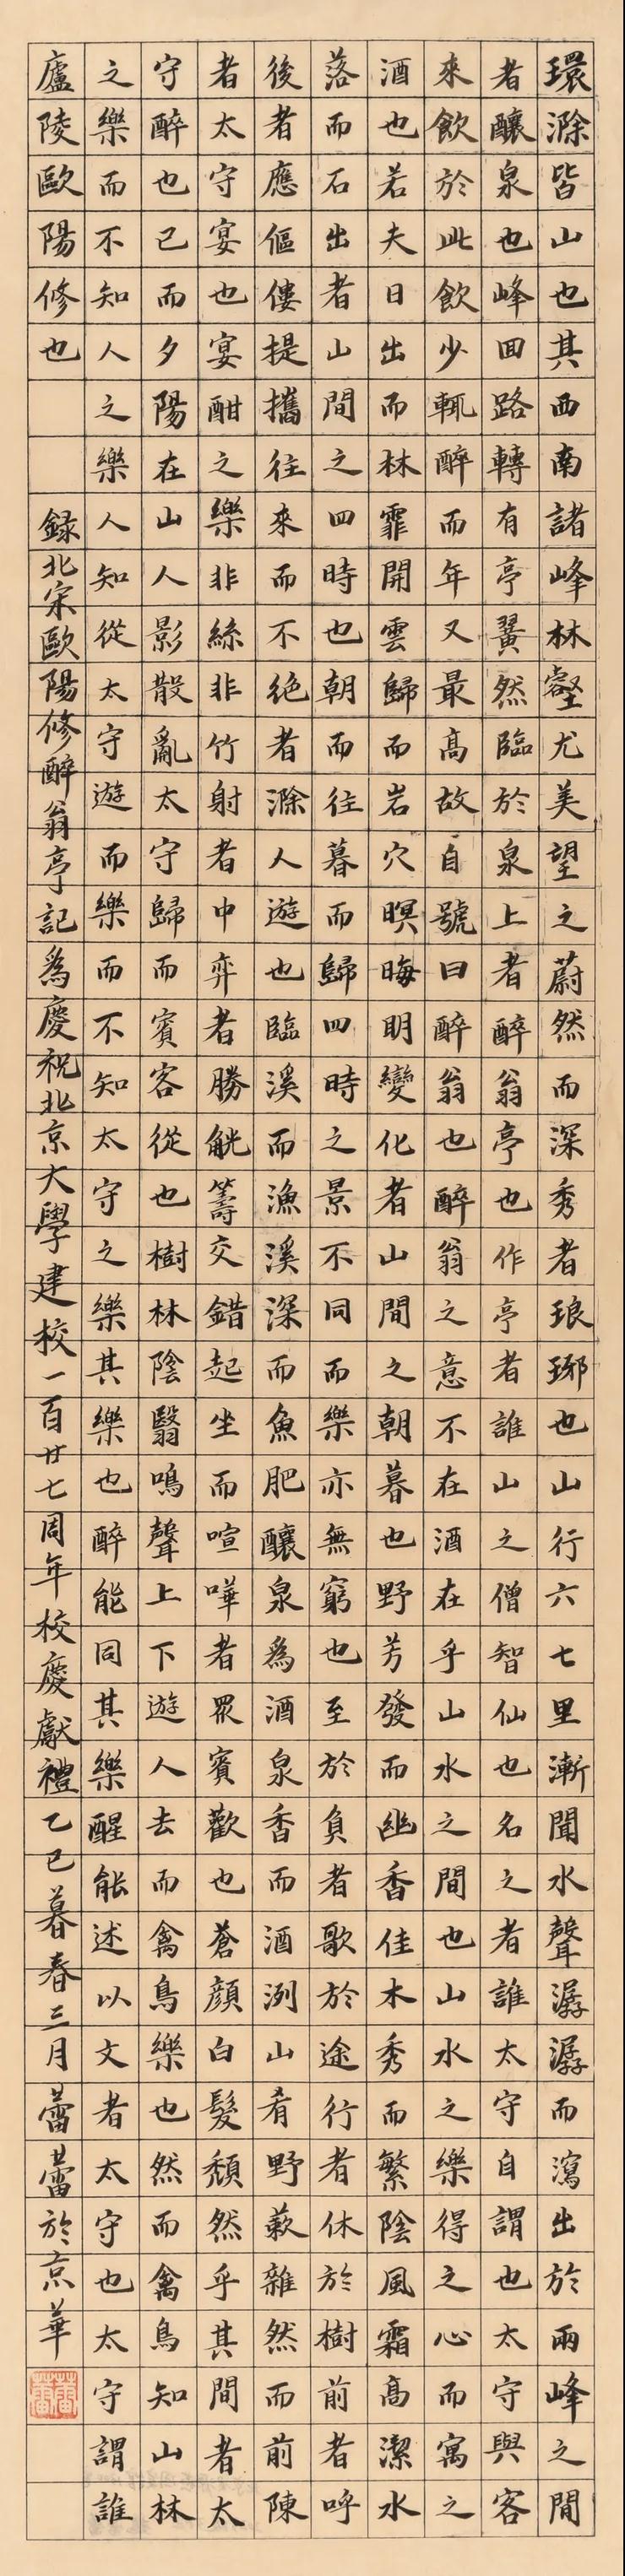 環滁皆山也其西南諸峰林壑尤美望之蔚然而深秀者琅琊也山行六七里漸聞水聲潺潺而瀉出於兩峰之間
者釀泉也峰回路轉有亭翼然臨於泉上者醉翁亭也作亭者誰山之僧智仙也名之者誰太守自謂也太守與客
來飲於此飲少輒醉而年又最高故自號曰醉翁也醉翁之意不在酒在乎山水之間也山水之樂得之心而寓之
酒也若夫日出而林霏開雲歸而岩穴暝晦明變化者山間之朝暮也野芳發而幽香佳木秀而繁陰風霜高潔水
落而石出者山間之四時也朝而往暮而歸四時之景不同而樂亦無窮也至於負者歌於途行者休於樹前者呼
後者應傴僂提攜往來而不絶者滁人遊也臨溪而漁溪深而魚肥釀泉爲酒泉香而酒洌山肴野蔌雜然而前陳
者太守宴也宴酣之樂非絲非竹射者中弈者勝觥籌交錯起坐而喧嘩者眾賓歡也蒼顔白髮頹然乎其間者太
守醉也已而夕陽在山人影散亂太守歸而賓客從也樹林陰翳鳴聲上下遊人去而禽鳥樂也然而禽鳥知山林
之樂而不知人之樂人知從太守遊而樂而不知太守之樂其樂也醉能同其樂醒能述以文者太守也太守謂誰
廬陵歐陽修也 録北宋歐陽修醉翁亭記爲慶祝北京大學建校一百廿七周年校慶獻禮乙巳暮春三月蕾蕾於京華
蕾蕾